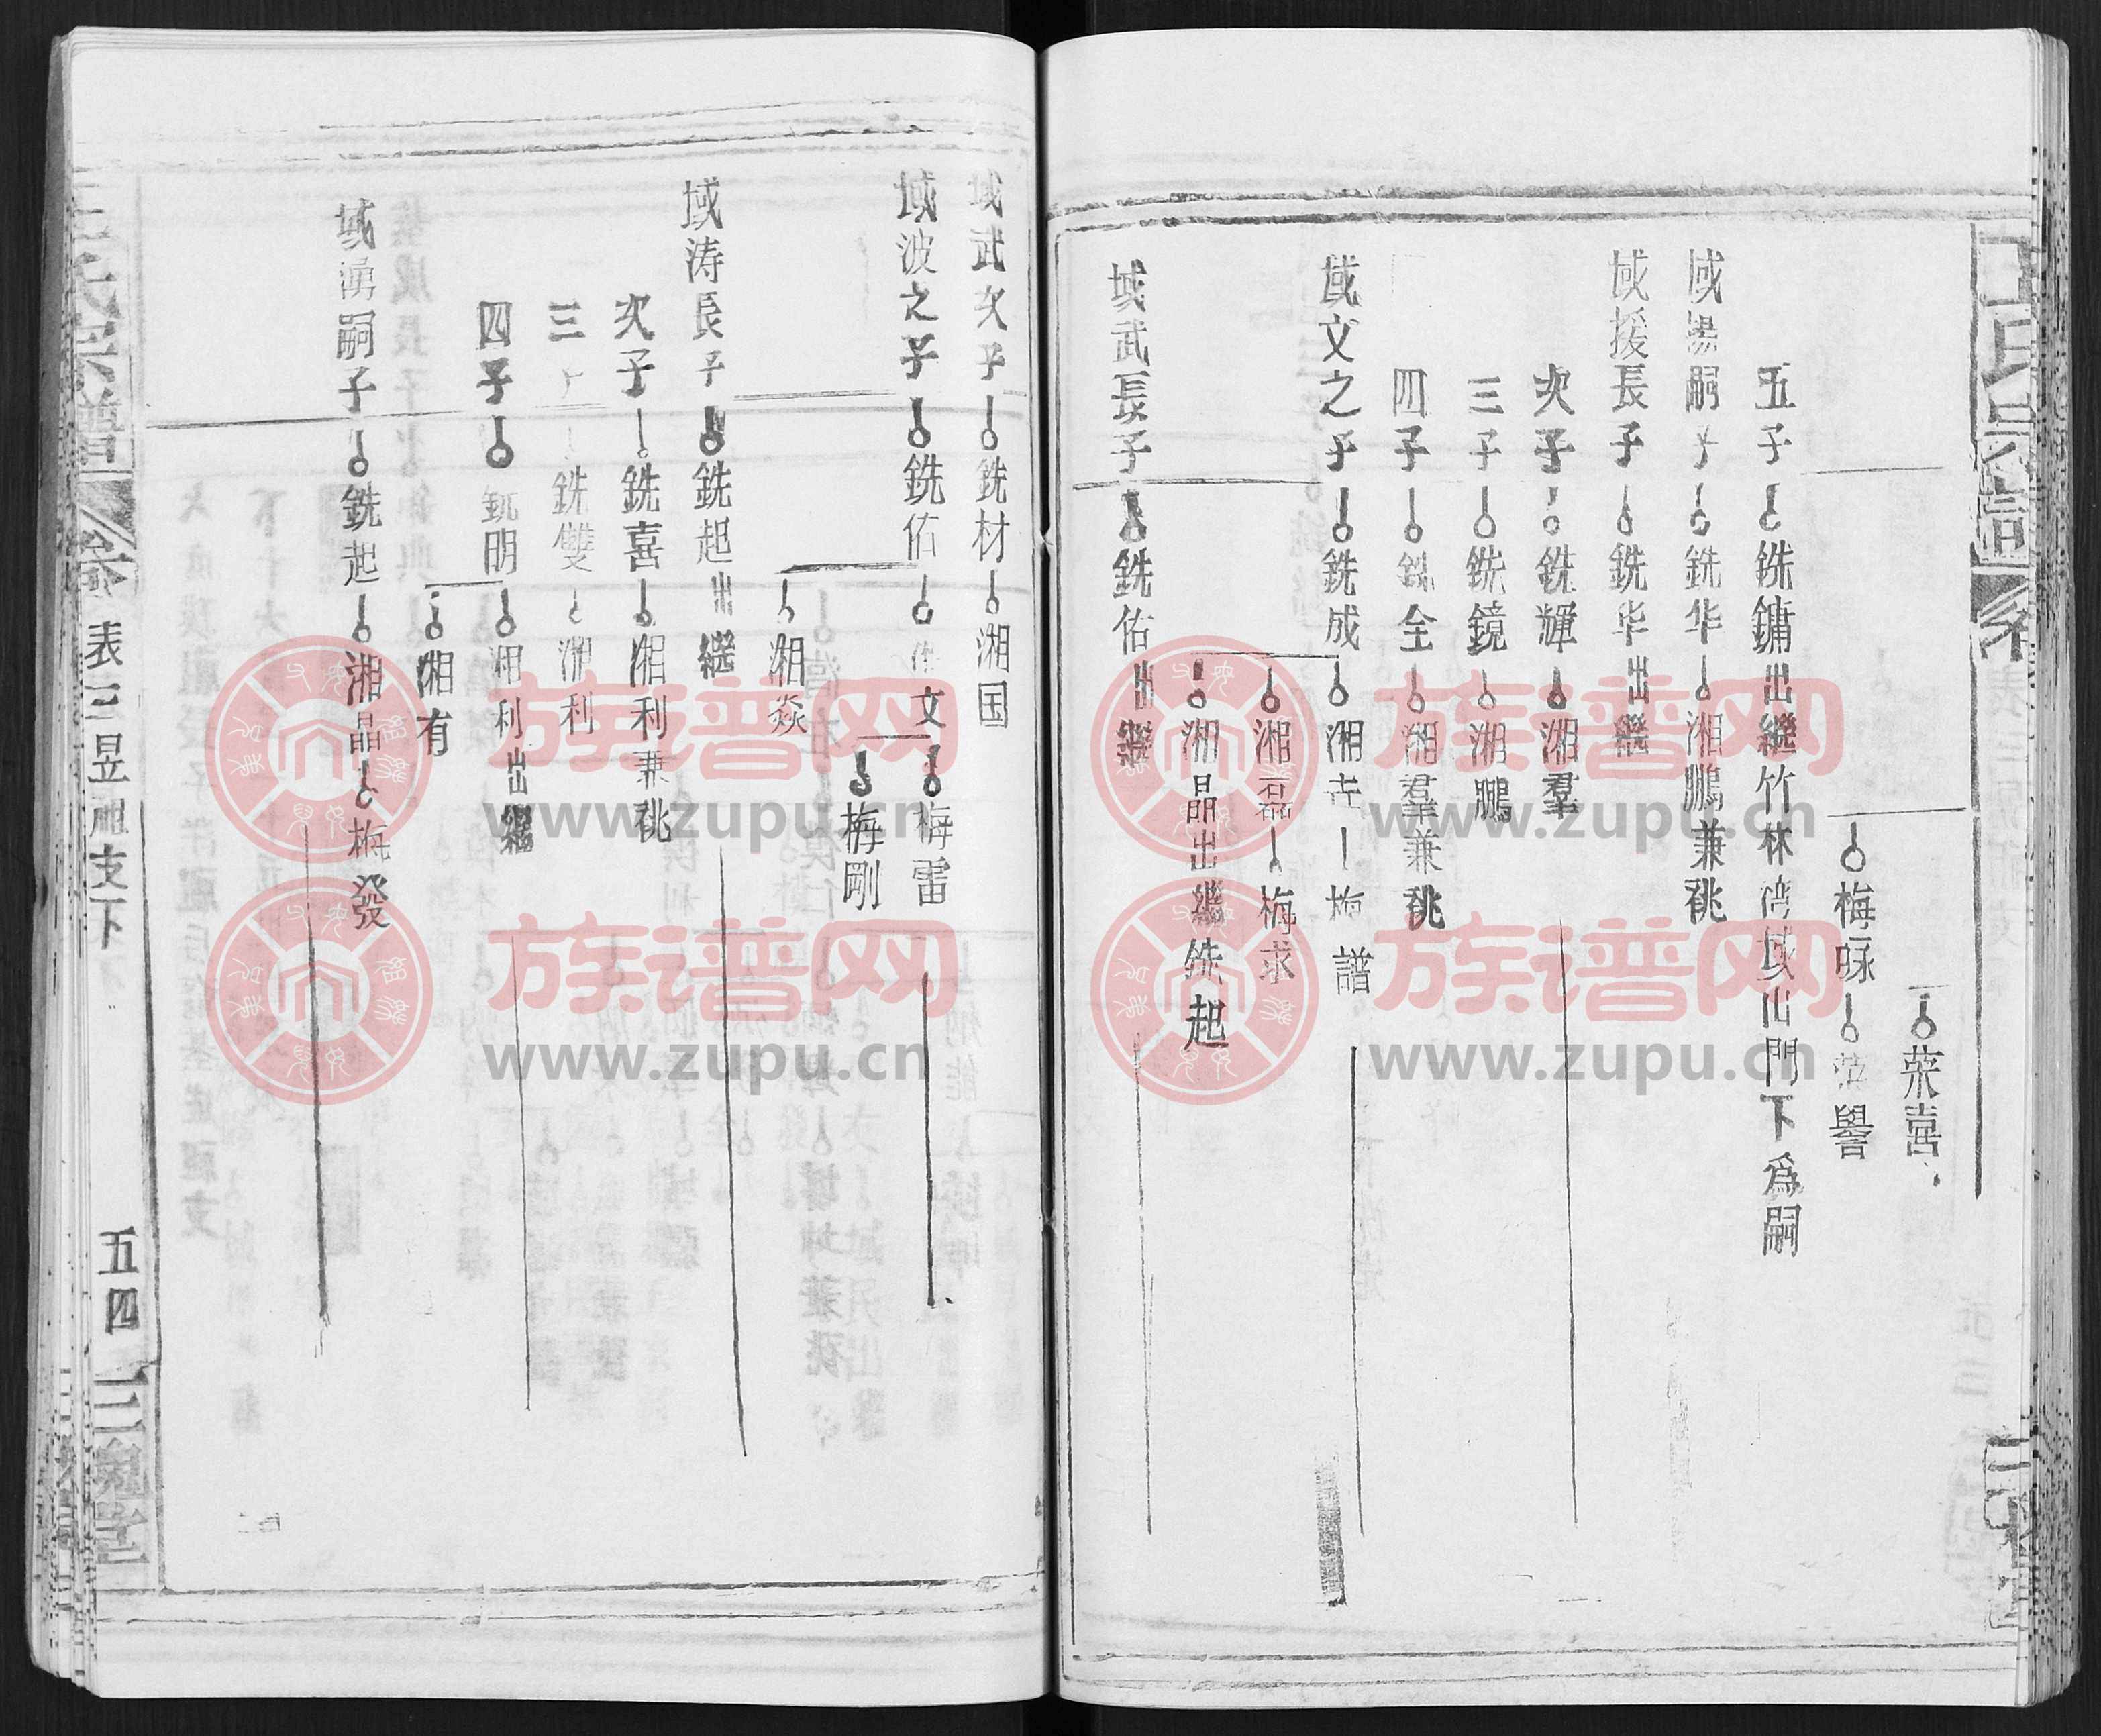 王氏宗譜
榮喜
梅咏 榮譽
五子 銑鏞出繼竹林湾域仙門下為嗣
域揚嗣子 銑华 湘鵬兼祧
域援長子 銑华出繼
次子 銑輝 湘羣
三子 銑鏡 湘鵬
四子 銑全 湘羣兼祧
域文之子 銑成 湘 梅譜
湘磊 梅求
湘晶出繼銑起
域武長子 銑佑出繼
域武次子 銑材 湘国
域波之子 銑佑 文 梅雷
梅剛
湘焱
域涛長子 銑起出繼
次子 銑喜 湘利兼祧
三 銑雙 湘利
四子 銑明 湘利出繼
湘有
域湧嗣子 銑起 湘晶 梅發
王氏宗譜 卷 表三昱 支下 五四 三槐堂
族谱网
www.zupu.cn
族谱网
www.zupu.cn
族谱网
www.zupu.cn
族谱网
www.zupu.cn